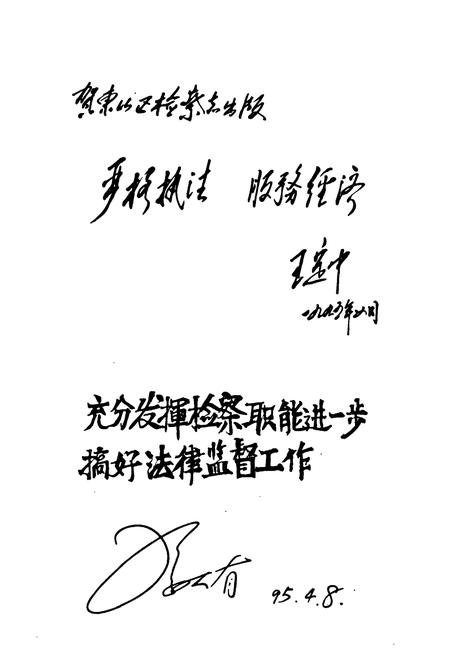 贺东山区检察志出版
严格执法 服務经济
王定中
一九九五年六月
充分发揮检察职能进一步
搞好法律监督工作
95.4.8.